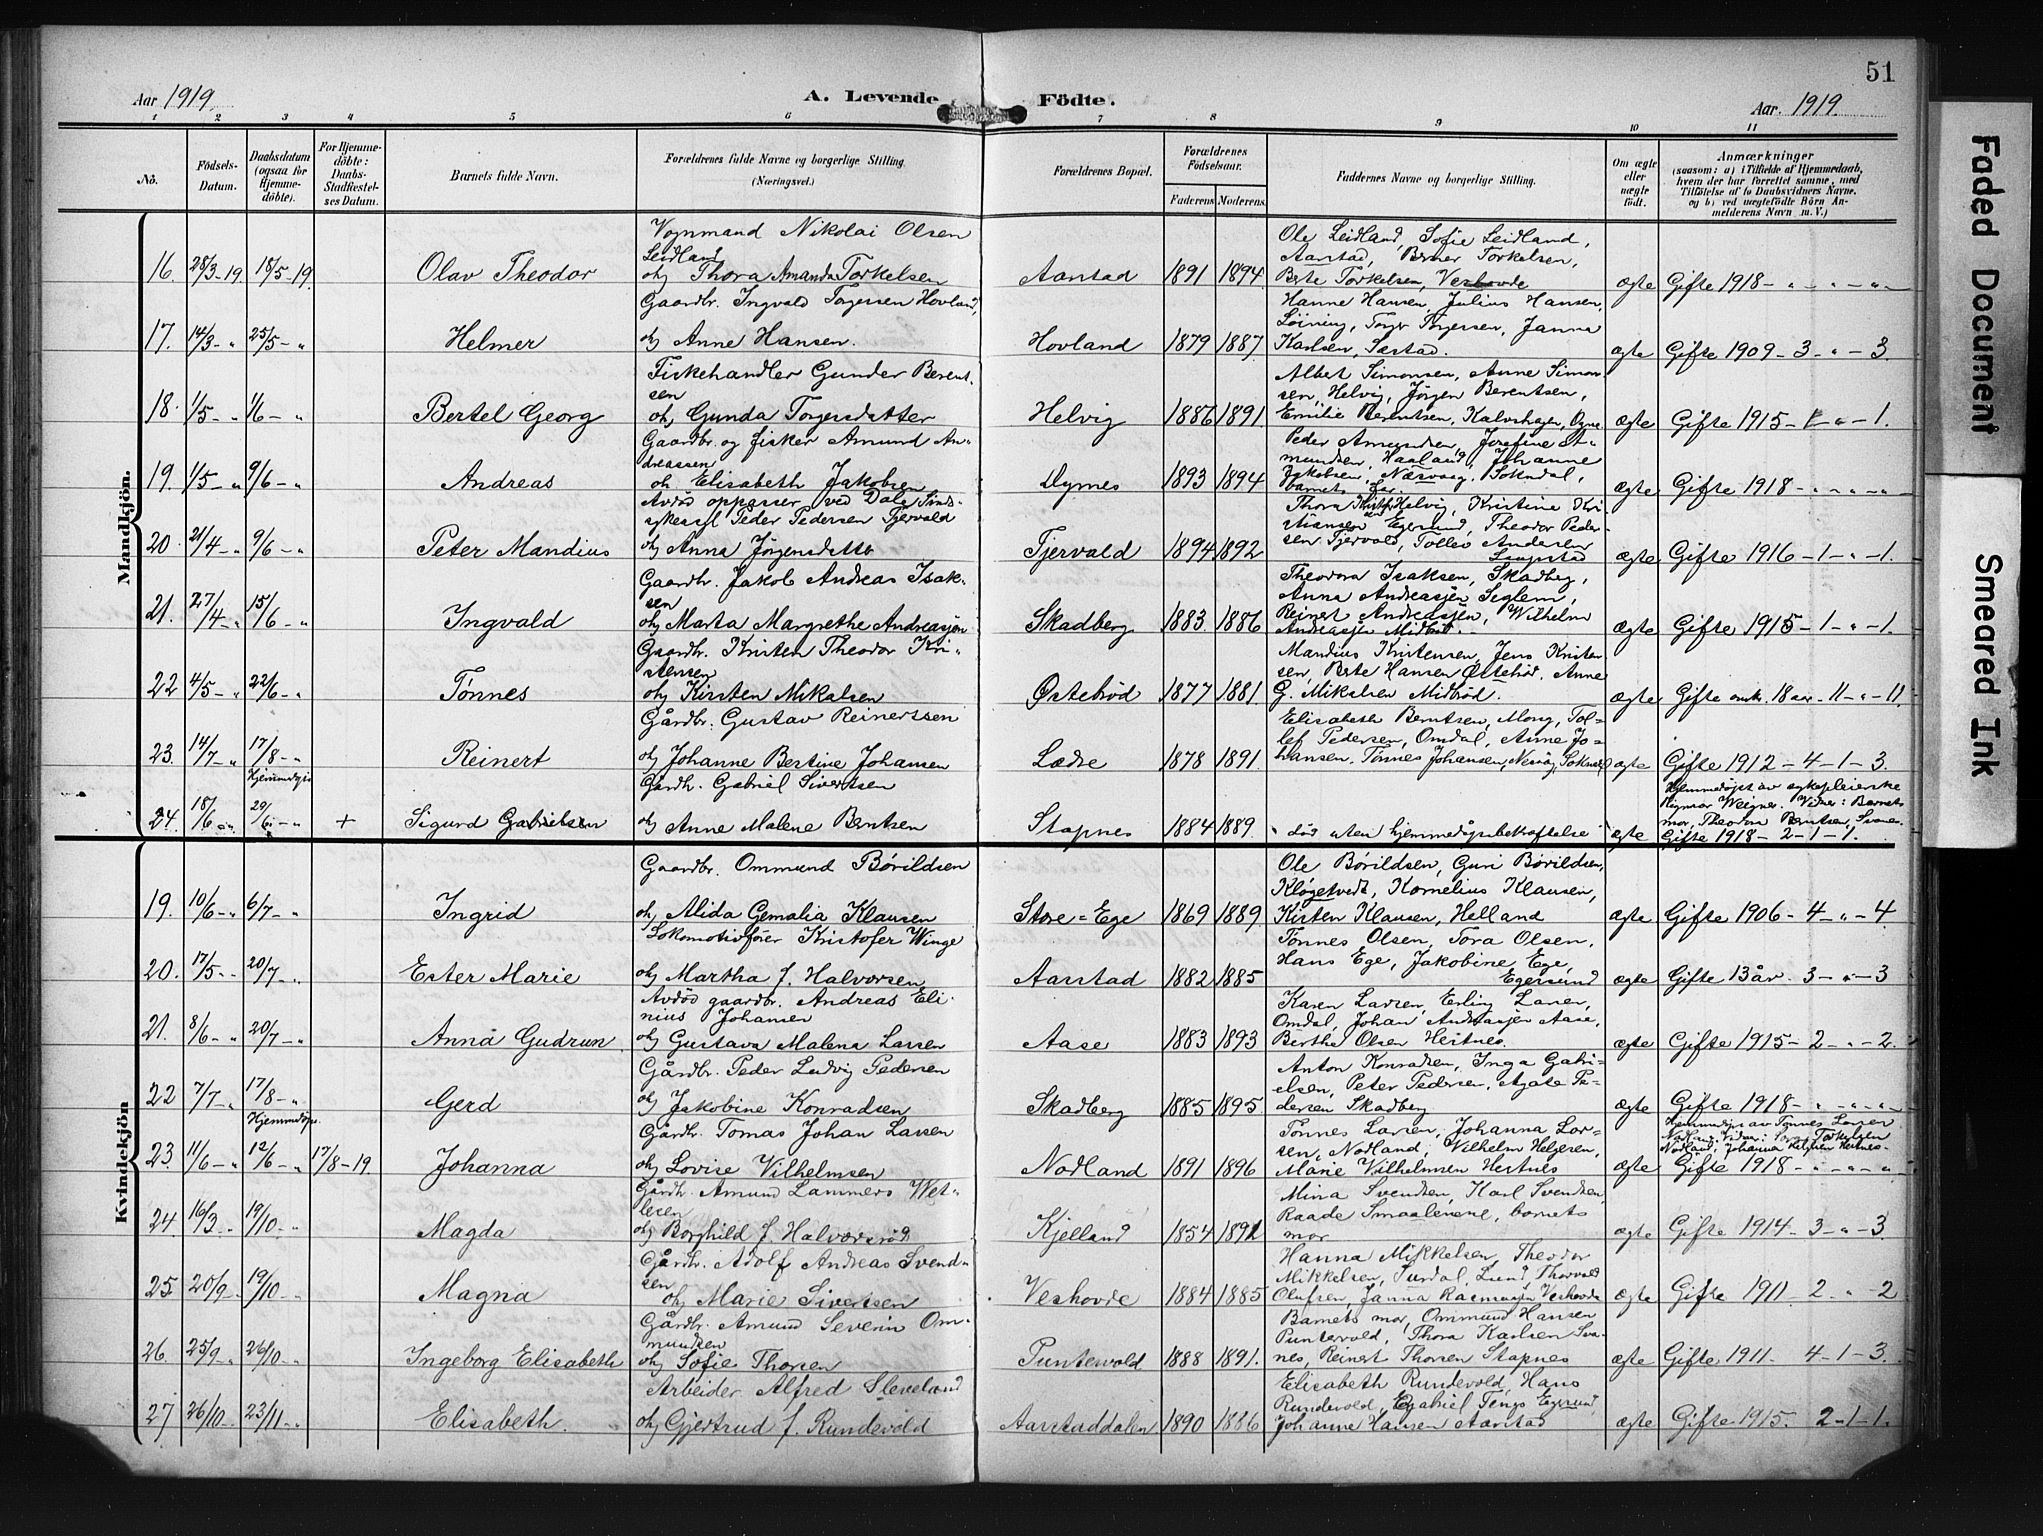 51
Aar 1919.
A. Levende Födte.
Aar. 1919.
1 2 3 4 5 6 7 8 9 10 11
No.
Födsels-Datum.
Daabsdatum (ogsaa for Hjemme-döbte).
For Hjemme-döbte: Daabs-Stadfæstel-ses Datum.
Barnets fulde Navn.
Forældrenes fulde Navne og borgerlige Stilling. (Næringsvei.)
Forældrenes Bopæl.
Forældrenes Födselsaar.
Faderens. Moderens.
Faddernes Navne og borgerlige Stilling.
Om ægte eller uægte födt.
Anmærkninger
(saasom: a) i Tilfælde af Hjemmedaab, hvem der har forrettet samme, med Tilföielse af to Daabsvidners Navne, og b) ved uægtefödte Börn An-melderens Navn m. V.)
Mandkjön.
16. 28/3-19. 18/5-19. Olav Theodor
Vognmand Nikolai Olsen
Leidland
og Thora Amanda Torkelsen
Aarstad 1891 1894.
Ole Leidland, Sofie Leidland,
Aarstad, Berner Torkelsen,
Berte Torkelsen, Veshovde
ægte Gifte 1918 - " - " - " -
17. 14/3 - " 25/5 - " Helmer
Gaardbr. Ingvald Torgersen Hovland,
og Anne Hansen.
Hovland 1879 1887
Hanne Hansen, Julius Hansen,
Løining, Torger Torgersen, Janna
Karlsen, Sæstad.
ægte Gifte 1909 - 3 - " - 3.
18. 1/5 - " 1/6 - " Bertel Georg
Fiskehandler Gunder Berent-
sen
og Gunda Torgersdatter
Helvig 1886 1891.
Albert Simonsen, Anne Simon-
sen, Helvig, Jørgen Berentsen,
Emilie Berentsen, Kalvshagen, Ogne
ægte Gifte 1915 - 1 - " - 1.
19. 1/5 - " 9/6 - " Andreas
Gaardbr. og fisker Amund An-
dreassen
og Elisabeth Jakobsen
Dyrnes 1893 1894
Peder Amundsen, Josefine A-
mundsen, Haaland, Johanne
Jakobsen, Næsvaag, Sokndal,
barnets far
ægte Gifte 1918 - " - " - " -
20. 21/4 - " 9/6 - " Peter Mandius
Avdød oppasser ved Dale Sinds-
sykeasyl Peder Pedersen Tjervald
og Anna Jørgensdatter
Tjervald 1894 1892
Thora Helvig, Kristine Kri-
stiansen Egersund, Theodor Peder-
sen Tjervald, Tolleif Andersen
ægte Gifte 1916 - 1 - " - 1.
21. 27/4 - " 15/6 - " Ingvald
Gaardbr. Jakob Andreas Isak-
sen
og Marta Margrethe Andreassen
Skadberg 1883. 1886
Theodora Isaksen, Skadberg,
Anna Andreassen Seglem,
Reinert Andreassen, Wilhelm
Andreassen Midbrød.
ægte Gifte 1915 - 1 - " - 1.
22 4/5 - " 22/6 - " Tønnes
Gaardbr. Kristen Theodor Kri-
stensen
og Kirsten Mikalsen
Østebrød 1877 1881.
Mandius Kristensen, Jens Kristen-
sen, Berte Hansen Østebrød, Anne
G. Mikalsen Midbrød.
ægte Gifte omtr. 18 aar - 11 - " - 11.
23. 14/7 - " 17/8 - " Reinert
Gårdbr. Gustav Reinertsen
og Johanne Bertine Johansen
Lædre 1878 1891.
Elisabeth Berntsen, Mong, Tol-
lef Pedersen, Omdal, Anne Jo-
hansen, Tønnes Johansen, Nesvåg, Sokndal
ægte Gifte 1912 - 4 - 1 - 3.
24. 18/6 - " Hjemmedøpt 29/6 - " + Sigurd Gabrielsen
Gårdbr. Gabriel Sivertsen
og Anne Malene Berntsen
Stapnes 1884 1889.
" død uten hjemmedåpsbekræftelse "
ægte
Hjemmedøpt av sykepleierske
Rigmor Weigner. Vidner: Barnets
mor, Theodora Berntsen, Svanes.
Gifte 1918 - 2 - 1 - 1.
Kvindekjön
19. 10/6 - " 6/7 - " Ingrid
Gaardbr. Ommund Børildsen
og Alida Gemalia Klausen
Store-Ege 1869 1889
Ole Børildsen, Guri Børildsen,
Kløgetvedt, Kornelius Klausen,
Kirsten Klausen, Helland
ægte Gifte 1906 - 4 - " - 4.
20. 17/5 - " 20/7 - " Ester Marie
Lokomotivfører Kristofer Winge
og Martha f. Halvorsen
Aarstad 1882 1885
Tønnes Olsen, Tora Olsen,
Hans Ege, Jakobine Ege,
Egersund
ægte Gifte 13 år - 3 - " - 3
21. 8/6 - " 20/7 - " Anna Gudrun
Avdød gaardbr. Andreas Eli-
nius Johansen
og Gustava Malena Larsen
Aase 1883 1893
Karen Larsen, Erling Larsen,
Omdal, Johan Andreassen Aase,
Berthe Olsen Hestnes.
ægte Gifte 1915 - 2 - " - 2.
22 7/7 - " 17/8 - " Gerd
Gårdbr. Peder Ludvig Pedersen
og Jakobine Konradsen
Skadberg 1885 1895
Anton Konradsen, Inga Gabri-
elsen, Peter Pedersen, Agate Pe-
dersen Skadberg
ægte Gifte 1918 - " - " - " -
23. 11/6 - " Hjemmedøpt. 12/6 - " 17/8-19. Johanna
Gårdbr. Tomas Johan Larsen
og Lovise Vilhelmsen
Nodland 1891 1896
Tønnes Larsen, Johanna Lar-
sen, Nodland, Vilhelm Helgesen,
Marie Vilhelmsen Hestnes
ægte
Hjemmedøpt av Tønnes Larsen
Nodland. Vidner: Torkelsen
Nodland, Johanna Helgesen Hestnes.
Gifte 1918 - " - " - "
24. 16/3 - " 19/10 - " Magda
Gårdbr. Amund Lammers Wet-
lesen
og Borghild f. Halvorsrød
Kjelland 1854 1891
Mina Svendsen, Karl Svendsen,
Raade Smaalenene, barnets
mor
ægte Gifte 1914 - 3 - " - 3
25 20/9 - " 19/10 - " Magna
Gårdbr. Adolf Andreas Svend-
sen
og Marie Sivertsen
Veshovde 1884 1885
Hanna Mikkelsen, Theodor
Mikkelsen, Surdal, Lund, Thorvald
Olufsen, Janna Rasmussen Veshovde
ægte Gifte 1911 - 2 - " - 2
26. 25/9 - " 26/10 - " Ingeborg Elisabeth
Gårdbr. Amund Severin Om-
mundsen
og Sofie Thorsen
Puntervold 1888 1891.
Barnets mor, Ommund Hansen
Puntervold, Thora Karlsen Sva-
nes, Reinert Thorsen Stapnes
ægte Gifte 1911 - 4 - 1 - 3.
27 26/10 - " 23/11 - " Elisabeth.
Arbeider Alfred Sleveland
og Gjertrud f. Rundevold
Aarstaddalen 1890 1886
Elisabeth Rundevold, Hans
Rundevold, Gabriel Tengs Egersund,
Johanne Hansen Aarstad
ægte Gifte 1915. 2 - 1 - 1.
Faded Document
Smeared Ink